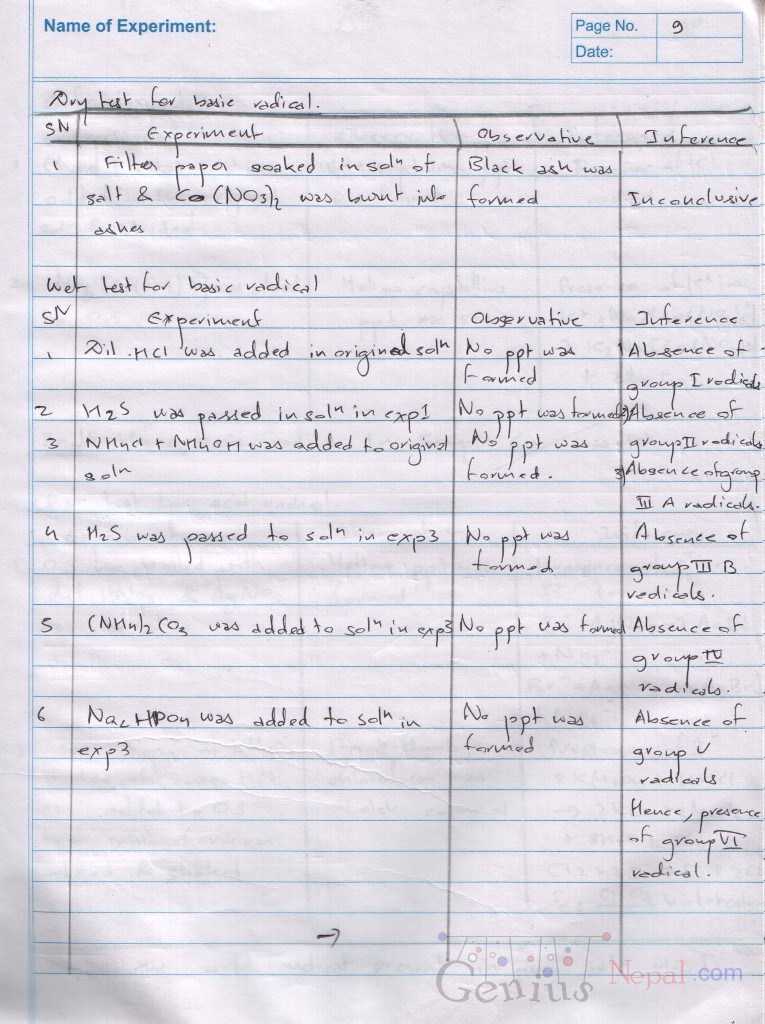 Name of Experiment:
Page No. 9
Date:
Dry test for basic radical.
SN Experiment Observative Inference
1 Filter paper soaked in solⁿ of Black ash was
salt & Co(NO3)2 was burnt into formed Inconclusive
ashes
Wet test for basic radical
SN Experiment Observative Inference
1. Dil. HCl was added in original solⁿ No ppt was 1) Absence of
formed group I radicals
2 H2S was passed in solⁿ in exp1 No ppt was formed 2) Absence of
3 NH4Cl + NH4OH was added to original No ppt was group II radicals
solⁿ formed. 3) Absence of group
III A radicals.
4 H2S was passed to solⁿ in exp3 No ppt was Absence of
formed group III B
redicals.
5 (NH4)2CO3 was added to solⁿ in exp3 No ppt was formed Absence of
group IV
radicals.
6 Na2HPO4 was added to solⁿ in No ppt was Absence of
exp3 formed group V
radicals
Hence, presence
of group VI
radical.
→
Genius Nepal.com